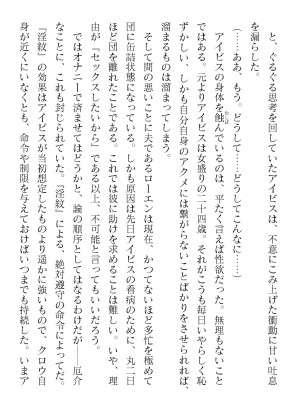 と、ぐるぐる思考を回していたアイビスは、不意にこみ上げた衝動に甘い吐息
を漏らした。
(……ああ、もう。どうして……どうしてこんなに……)
アイビスの身体を蝕んでいるのは、平たく言えば性欲だった。無理もないこと
ではある。元よりアイビスは女盛りの二十四歳。それがこうも毎日いやらしく恥
ずかしい、しかも自分自身のアクメには繋がらないことばかりをさせられれば、
溜まるものは溜まってしまう。
そして間の悪いことに夫であるローエンは現在、かつてないほど多忙を極めて
団に缶詰状態になっている。しかも原因は先日アイビスの看病のために、丸二日
ほど団を離れたことである。これでは彼に助けを求めることは難しい。いや、理
由が『セックスしたいから』である以上、不可能と言ってもいいだろう。
ではオナニーで済ませてはどうかと、論の順序としてはなるわけだが――厄介
なことに、これも封じられていた。『淫紋』による、絶対遵守の命令によってだ。
『淫紋』の効果はアイビスが当初想定したものより遥かに強いもので、クロウ自
身が近くにいなくとも、命令や制限を与えておけばいつまでも持続した。いまア